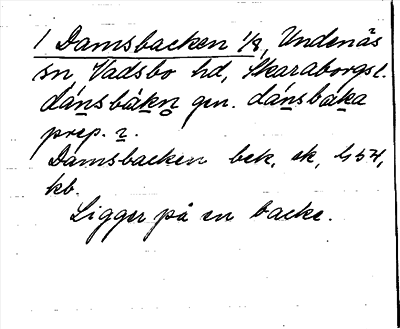 1 Damsbacken 1/8, Undenäs
sn, Vadsbo hd, Skaraborgs l.
dánsbákn gen. dánsbáka
prep. i.
Damsbacken bek. ek,
kb.
Ligger på en backe.